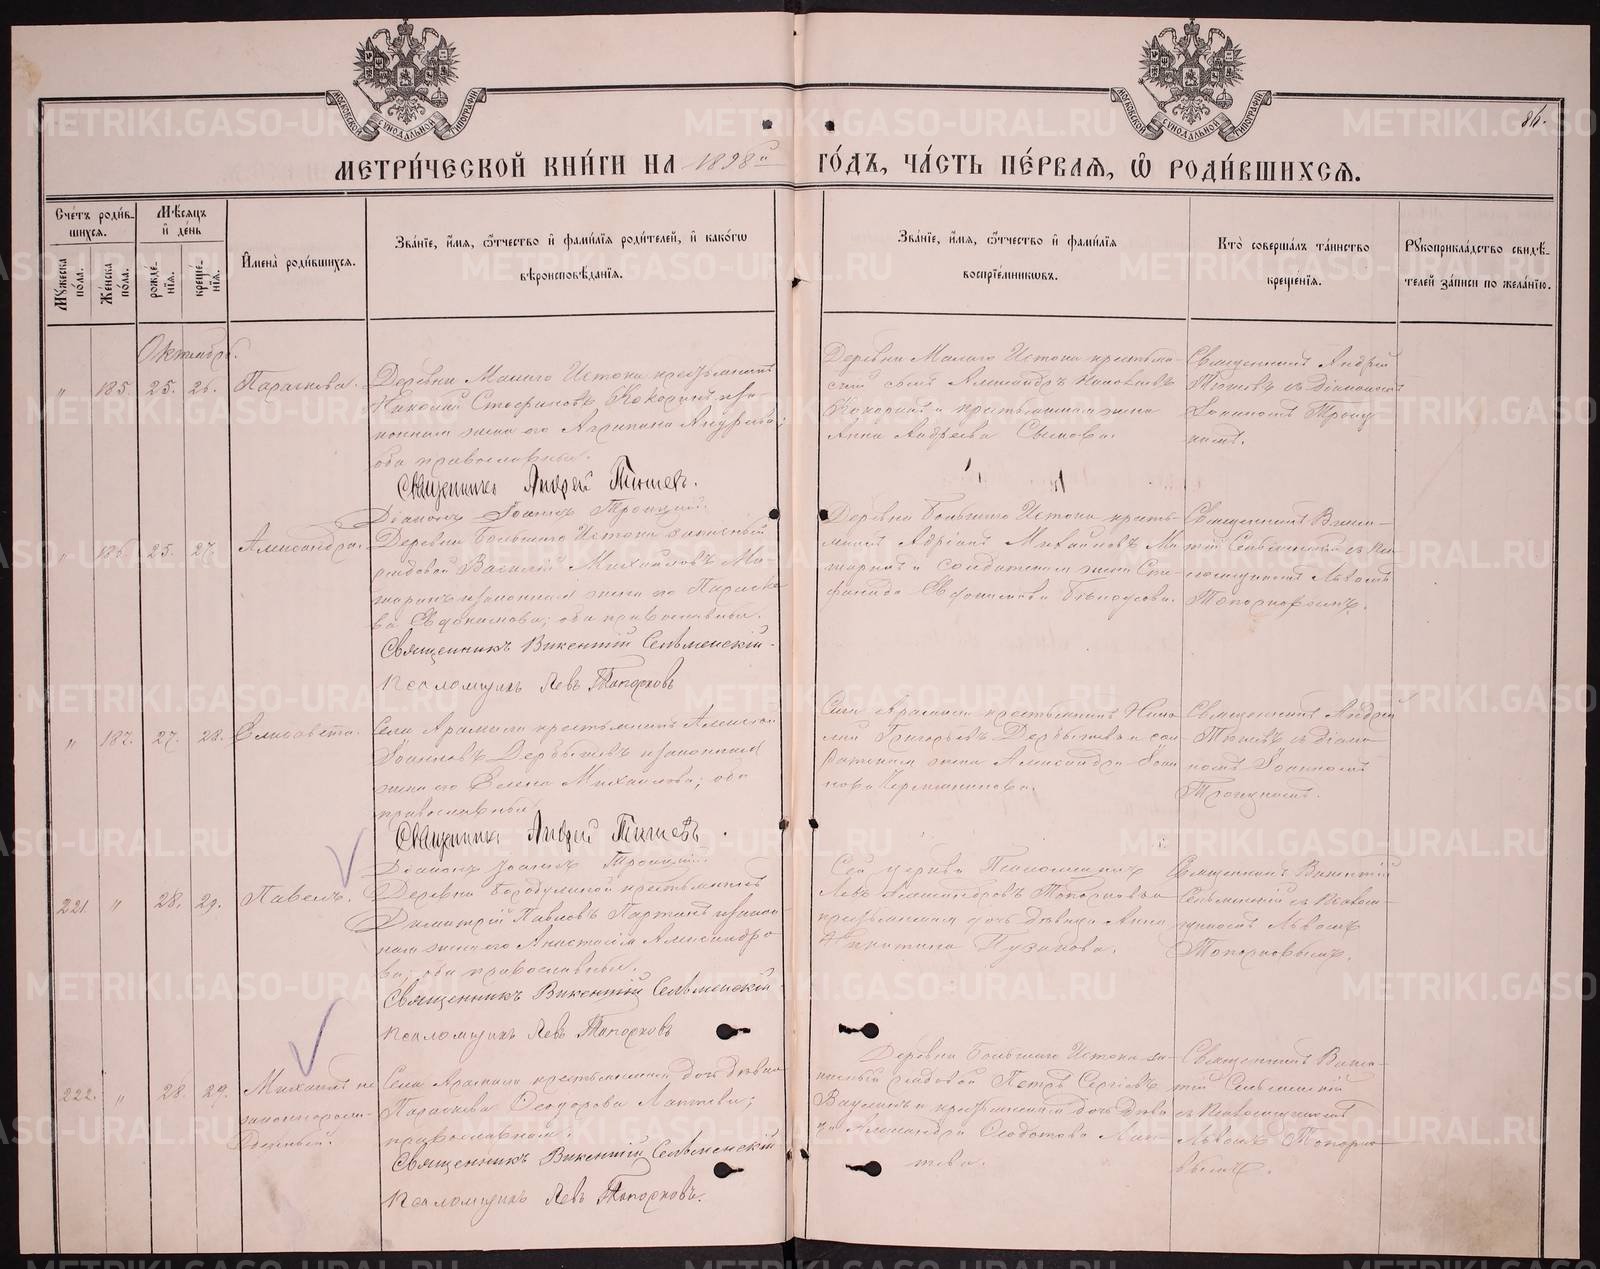 МОСКОВСКОЙ СѴНОДАЛЬНОЙ ТИПОГРАФІИ
МОСКОВСКОЙ СѴНОДАЛЬНОЙ ТИПОГРАФІИ
86.
МЕТРИ́ЧЕСКОЙ КНИ́ГИ НА 1898й ГО́ДЪ, ЧА́СТЬ ПЕ́РВАЯ, Ѽ РОДИ́ВШИХСЯ.
Сче́тъ роди́в-
шихся.
Мѣ́сяцъ
и҆ де́нь
Му́жеска по́ла.
Же́нска по́ла.
рожде-
нія.
креще́-
нія.
И҆мена̀ роди́вшихся.
Зва́ніе, и҆́мя, ѻ҆́тчество и҆ фами́лія роди́телей, и҆ како́гѡ
вѣроисповѣ́данія.
Зва́ніе, и҆́мя, ѻ҆́тчество и҆ фами́лія
воспріе́мниковъ.
Кто̀ соверша́лъ та́инство
креще́нія.
Рꙋкоприкла́дство свидѣ́-
телей за́писи по жела́нію.
Октябрь.
" 185. 25. 26. Параскева.
Деревни Малаго Истока крестьянинъ
Николай Стефановъ Кокоринъ и за-
конная жена его Агрипина Андреева;
оба православные.
Священникъ Андрей Тюшевъ.
Діаконъ Іоаннъ Троицкій.
Деревни Малаго Истока крестьян-
скій сынъ Александръ Николаевъ
Кокоринъ и крестьянская жена
Анна Андреева
Священникъ Андрей
Тюшевъ съ діакономъ
Іоанномъ Троиц-
кимъ.
" 186. 25. 27. Александра.
Деревни Большаго Истока запасный
рядовой Василій Михайловъ Ма-
и законная жена его Параске-
ва Евдокимова; оба православные.
Священникъ Викентій Сельменскій.
Псаломщикъ Левъ Топорковъ
Деревни Большаго Истока кресть-
янинъ Адріанъ Михайловъ Ма-
и солдатская жена Сте-
фанида
Священникъ Викен-
тій Сельменскій съ Пса-
ломщикомъ Львомъ
Топорковымъ.
" 187. 27. 28. Елисавета.
Села Арамили крестьянинъ Алексѣй
Іоанновъ Дерябышевъ и законная
жена его Елена Михайлова; оба
православные
Священникъ Андрей Тюшевъ.
Діаконъ Іоаннъ Троицкій.
Села Арамили крестьянинъ Нико-
лай Григорьевъ и сол-
датская жена Александра Іоан-
нова
Священникъ Андрей
Тюшевъ съ діако-
номъ Іоанномъ
Троицкимъ.
221. " 28. 29. Павелъ.
Деревни Бородулиной крестьянинъ
Димитрій Павловъ и закон-
ная жена его Анастасія Александро-
ва; оба православные.
Священникъ Викентій Сельменскій
Псаломщикъ Левъ Топорковъ
Сей церкви Псаломщикъ
Левъ Александровъ Топорковъ и
крестьянская дочь дѣвица Анна
Никитина Пузанова.
Священникъ Викентій
Сельменскій съ Псалом-
щикомъ Львомъ
Топорковымъ.
222. " 28. 29. Михаилъ не-
законнорож-
денный.
Села Арамили крестьянская дочь дѣвица
Параскева Ѳеодорова Лаптева;
православная.
Священникъ Викентій Сельменскій
Псаломщикъ Левъ Топорковъ.
Деревни Большаго Истока за-
пасный рядовой Петръ Сергіевъ
и крестьянская дочь дѣви-
ца Александра Лап-
тева.
Священникъ Викен-
тій Сельменскій
съ Псаломщикомъ
Львомъ Топорко-
вымъ.
METRIKI.GASO-URAL.RU